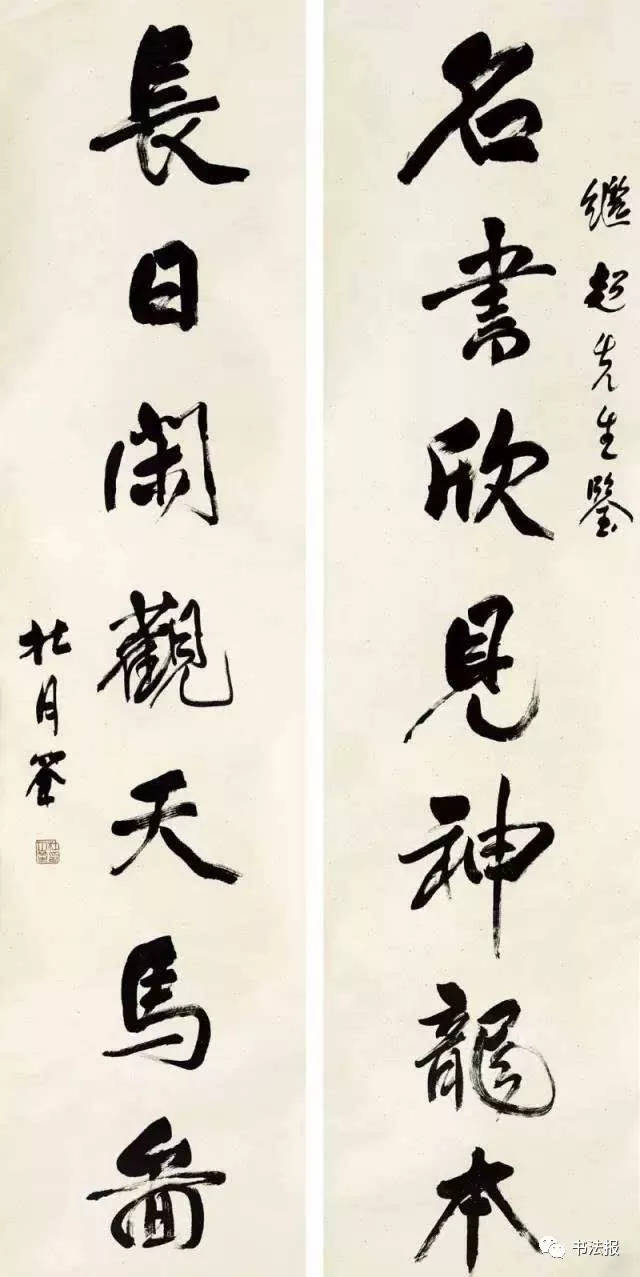 繼超先生鑒
名書欣見神龍本
長日閑觀天馬圖
杜月笙
书法报